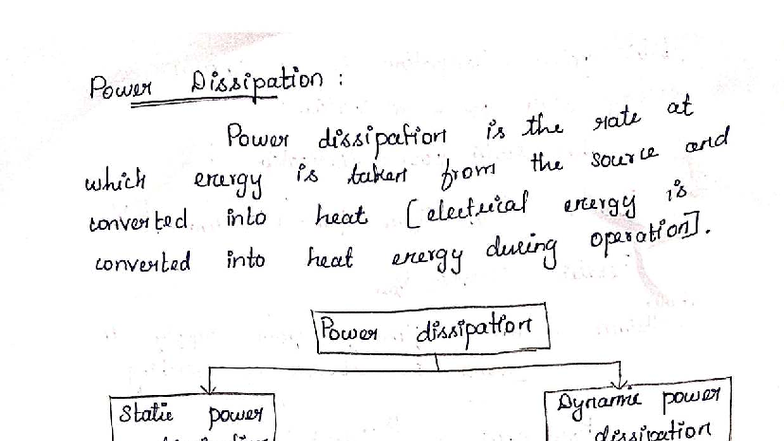 Power Dissipation :
Power dissipation is the rate at
which energy is taken from the source and
converted into heat [electrical energy is
converted into heat energy during operation].
Power dissipation
Static power
Dynamic power
dissipation